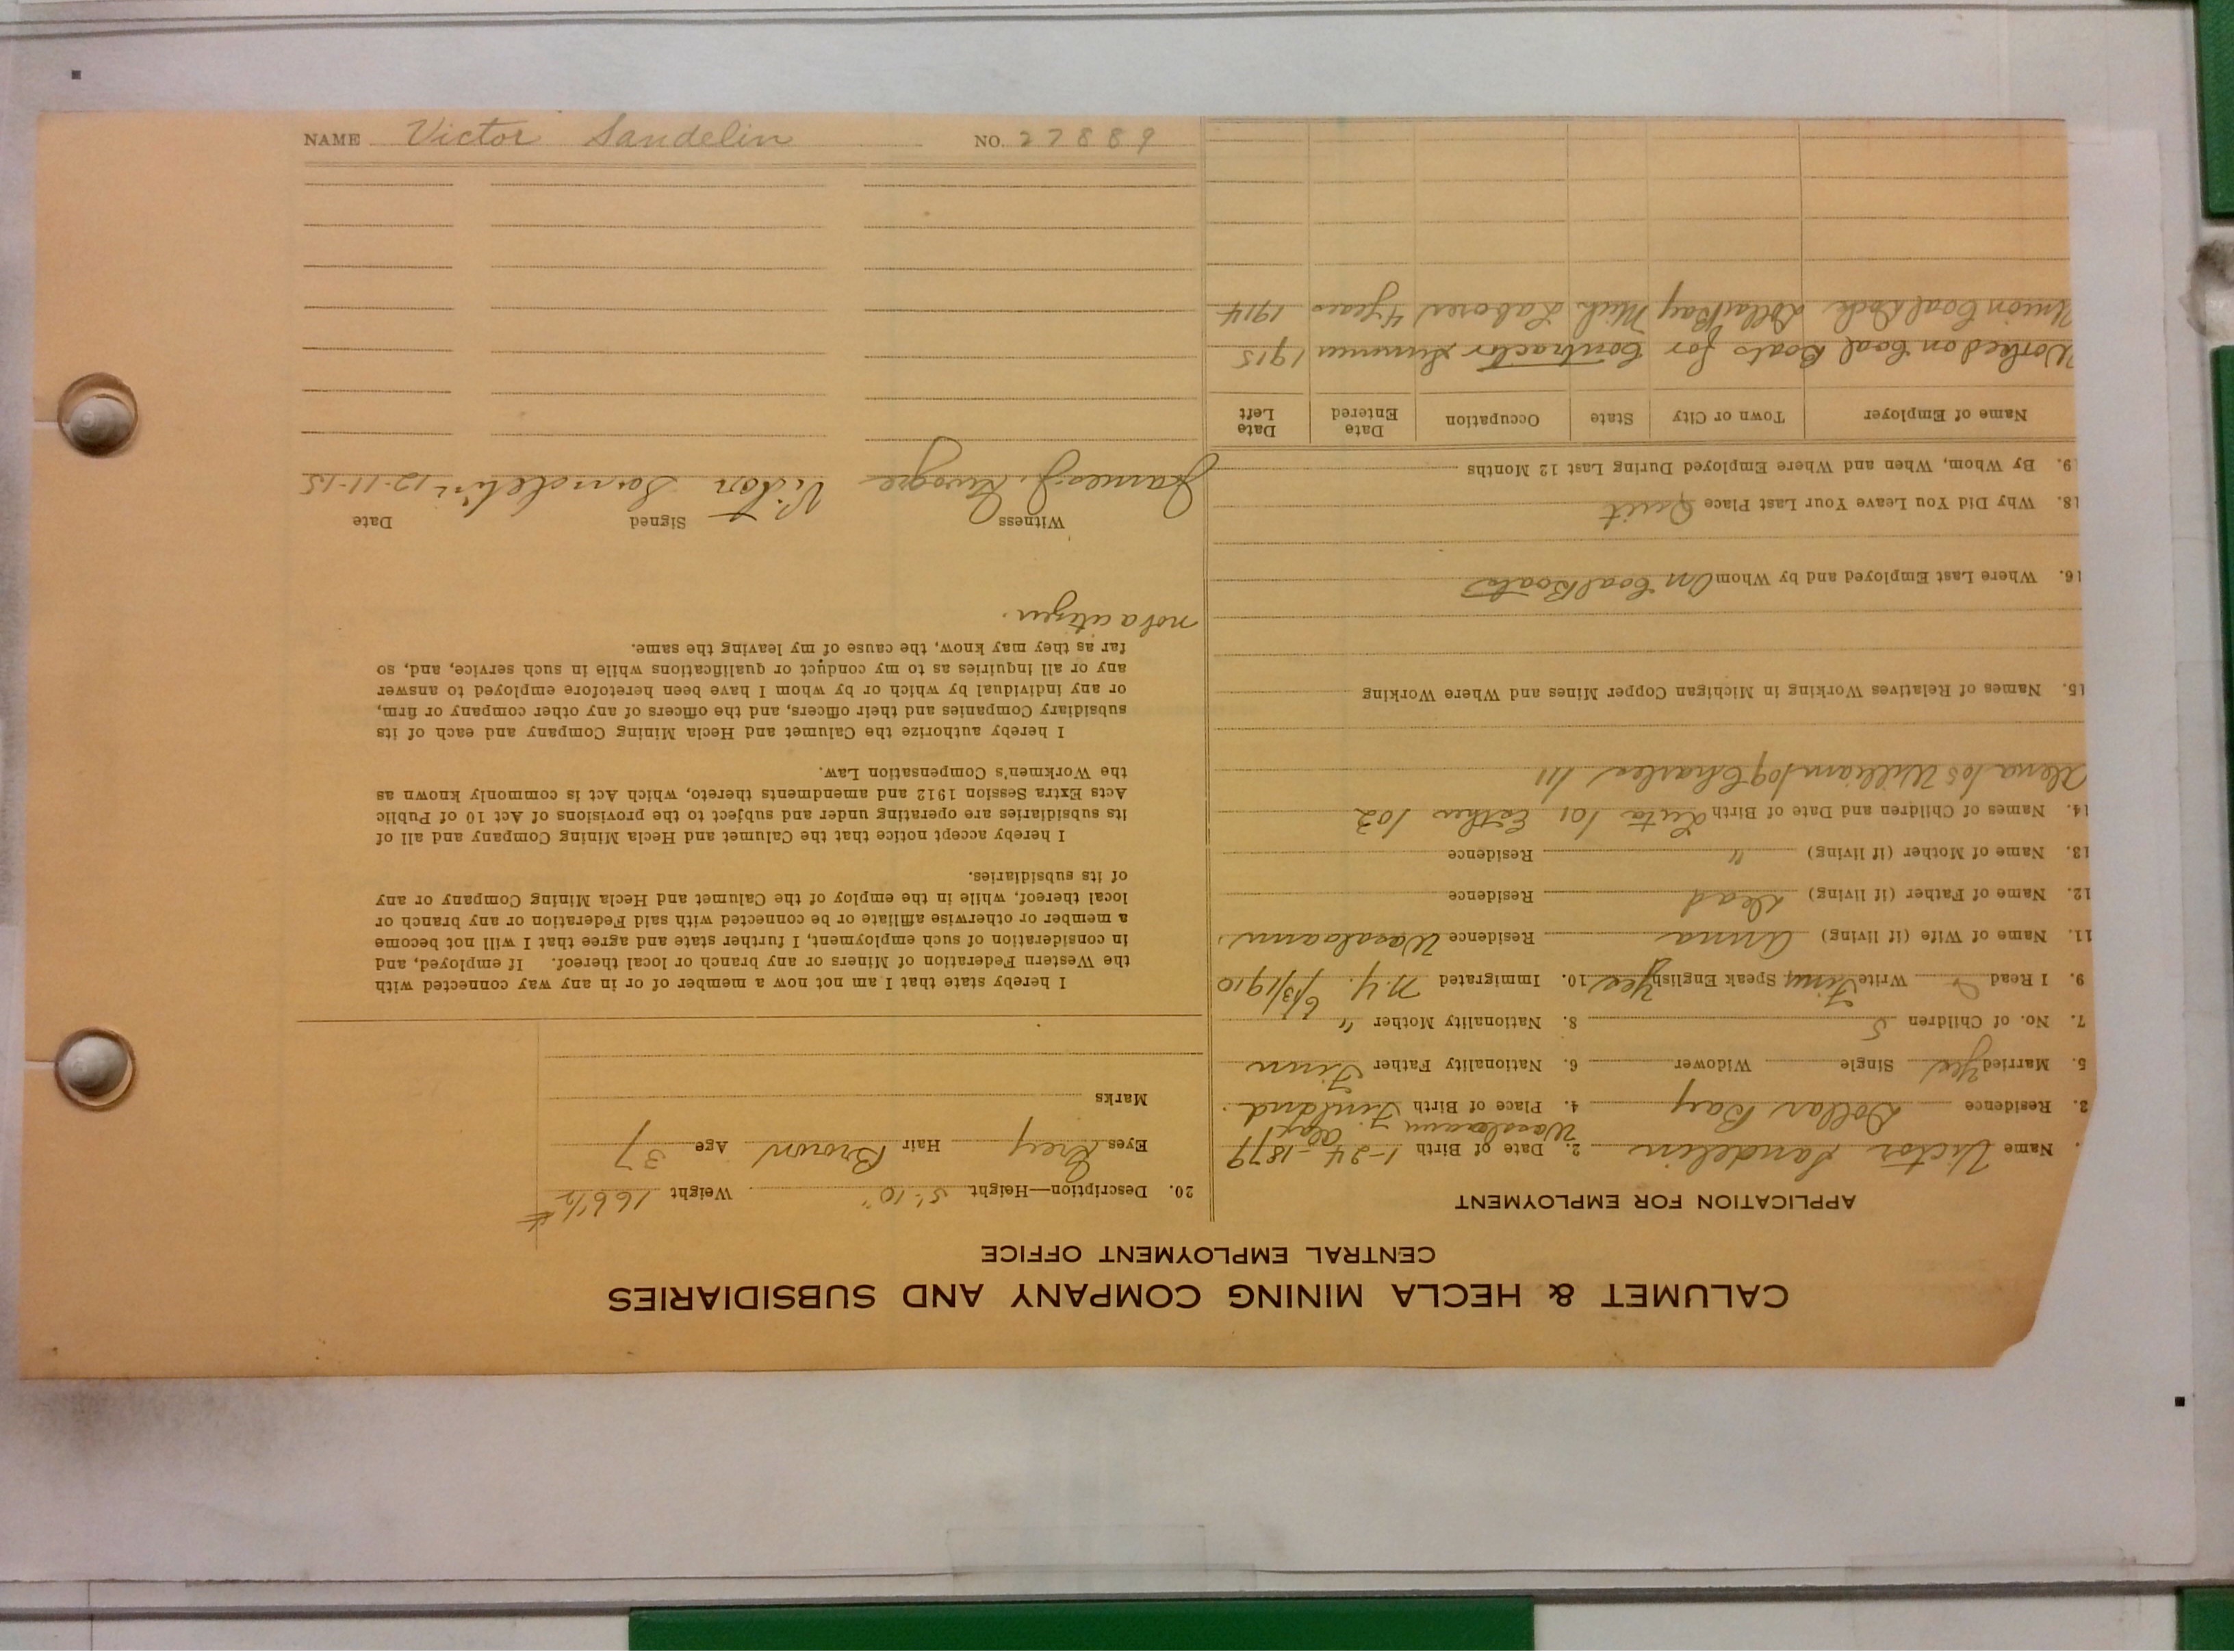 NAME Victor Sandelin NO. 27889
CALUMET & HECLA MINING COMPANY AND SUBSIDIARIES
CENTRAL EMPLOYMENT OFFICE
APPLICATION FOR EMPLOYMENT
Name Victor Sandelin 2. Date of Birth 1-24-1879
3. Residence Dollar Bay 4. Place of Birth Finland.
5. Married Yes Single Widower 6. Nationality Father Finn
7. No. of Children 5 8. Nationality Mother "
9. I Read Write Finn Speak English Yes 10. Immigrated N.Y. 6/3/1910
11. Name of Wife (if living) Anna Residence
12. Name of Father (if living) Dead Residence
13. Name of Mother (if living) " Residence
14. Names of Children and Date of Birth 101 Esther 102
105 William 109 Charles 111
15. Names of Relatives Working in Michigan Copper Mines and Where Working
16. Where Last Employed and by Whom On Coal Boats
18. Why Did You Leave Your Last Place Quit
19. By Whom, When and Where Employed During Last 12 Months
Name of Employer Town or City State Occupation Date Entered Date Left
Worked on Coal Boats for Contractor Summer 1915
Union Coal Dock Dollar Bay Mich Laborer 4 years 1914
20. Description—Height 5'-10" Weight 166 1/2 #
Eyes Grey Hair Brown Age 37
Marks
I hereby state that I am not now a member of or in any way connected with
the Western Federation of Miners or any branch or local thereof. If employed, and
in consideration of such employment, I further state and agree that I will not become
a member or otherwise affiliate or be connected with said Federation or any branch or
local thereof, while in the employ of the Calumet and Hecla Mining Company or any
of its subsidiaries.
I hereby accept notice that the Calumet and Hecla Mining Company and all of
its subsidiaries are operating under and subject to the provisions of Act 10 of Public
Acts Extra Session 1912 and amendments thereto, which Act is commonly known as
the Workmen's Compensation Law.
I hereby authorize the Calumet and Hecla Mining Company and each of its
subsidiary Companies and their officers, and the officers of any other company or firm,
or any individual by which or by whom I have been heretofore employed to answer
any or all inquiries as to my conduct or qualifications while in such service, and, so
far as they may know, the cause of my leaving the same.
not a citizen.
Witness Signed Date
James J. Victor Sandelin 12-11-15